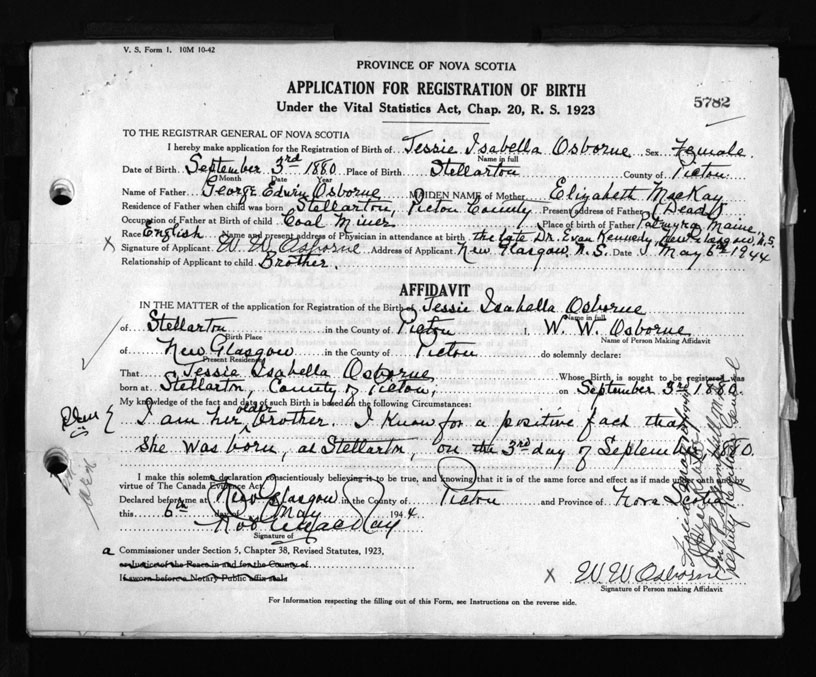 V. S. Form 1. 10M 10-42
PROVINCE OF NOVA SCOTIA
APPLICATION FOR REGISTRATION OF BIRTH
Under the Vital Statistics Act, Chap. 20, R. S. 1923
5782
TO THE REGISTRAR GENERAL OF NOVA SCOTIA
I hereby make application for the Registration of Birth of Jessie Isabella Osborne Sex Female
Name in full
Date of Birth September 3rd 1880 Place of Birth Stellarton County of Pictou
Month Date Year
Name of Father George Edwin Osborne MAIDEN NAME of Mother Elizabeth MacKay
Residence of Father when child was born Stellarton, Pictou County Present address of Father (Dead)
Occupation of Father at Birth of child Coal Miner Place of birth of Father Palmyra, Maine
Race English Name and present address of Physician in attendance at birth the late Dr. Evan Kennedy, New Glasgow, N.S.
X Signature of Applicant W. W. Osborne Address of Applicant New Glasgow, N.S. Date May 6th 1944
Relationship of Applicant to child Brother.
AFFIDAVIT
IN THE MATTER of the application for Registration of the Birth of Jessie Isabella Osborne
Name in full
of Stellarton in the County of Pictou I, W. W. Osborne
Birth Place Name of Person Making Affidavit
of New Glasgow in the County of Pictou do solemnly declare:
Present Residence
That Jessie Isabella Osborne Whose Birth is sought to be registered was
born at Stellarton, County of Pictou, on September 3rd 1880.
My knowledge of the fact and date of such Birth is based on the following Circumstances:
I am her older brother. I know for a positive fact that
she was born, at Stellarton, on the 3rd day of September 1880.
I make this solemn declaration conscientiously believing it to be true, and knowing that it is of the same force and effect as if made under oath and by
virtue of The Canada Evidence Act.
Declared before me at New Glasgow in the County of Pictou and Province of Nova Scotia
this 6th day of May 1944
Robt MacKay
Signature of
a Commissioner under Section 5, Chapter 38, Revised Statutes, 1923,
or Justice of the Peace in and for the County of
If sworn before a Notary Public affix seal
X W. W. Osborne
Signature of Person making Affidavit
Deputy Registrar General
For Information respecting the filling out of this Form, see Instructions on the reverse side.